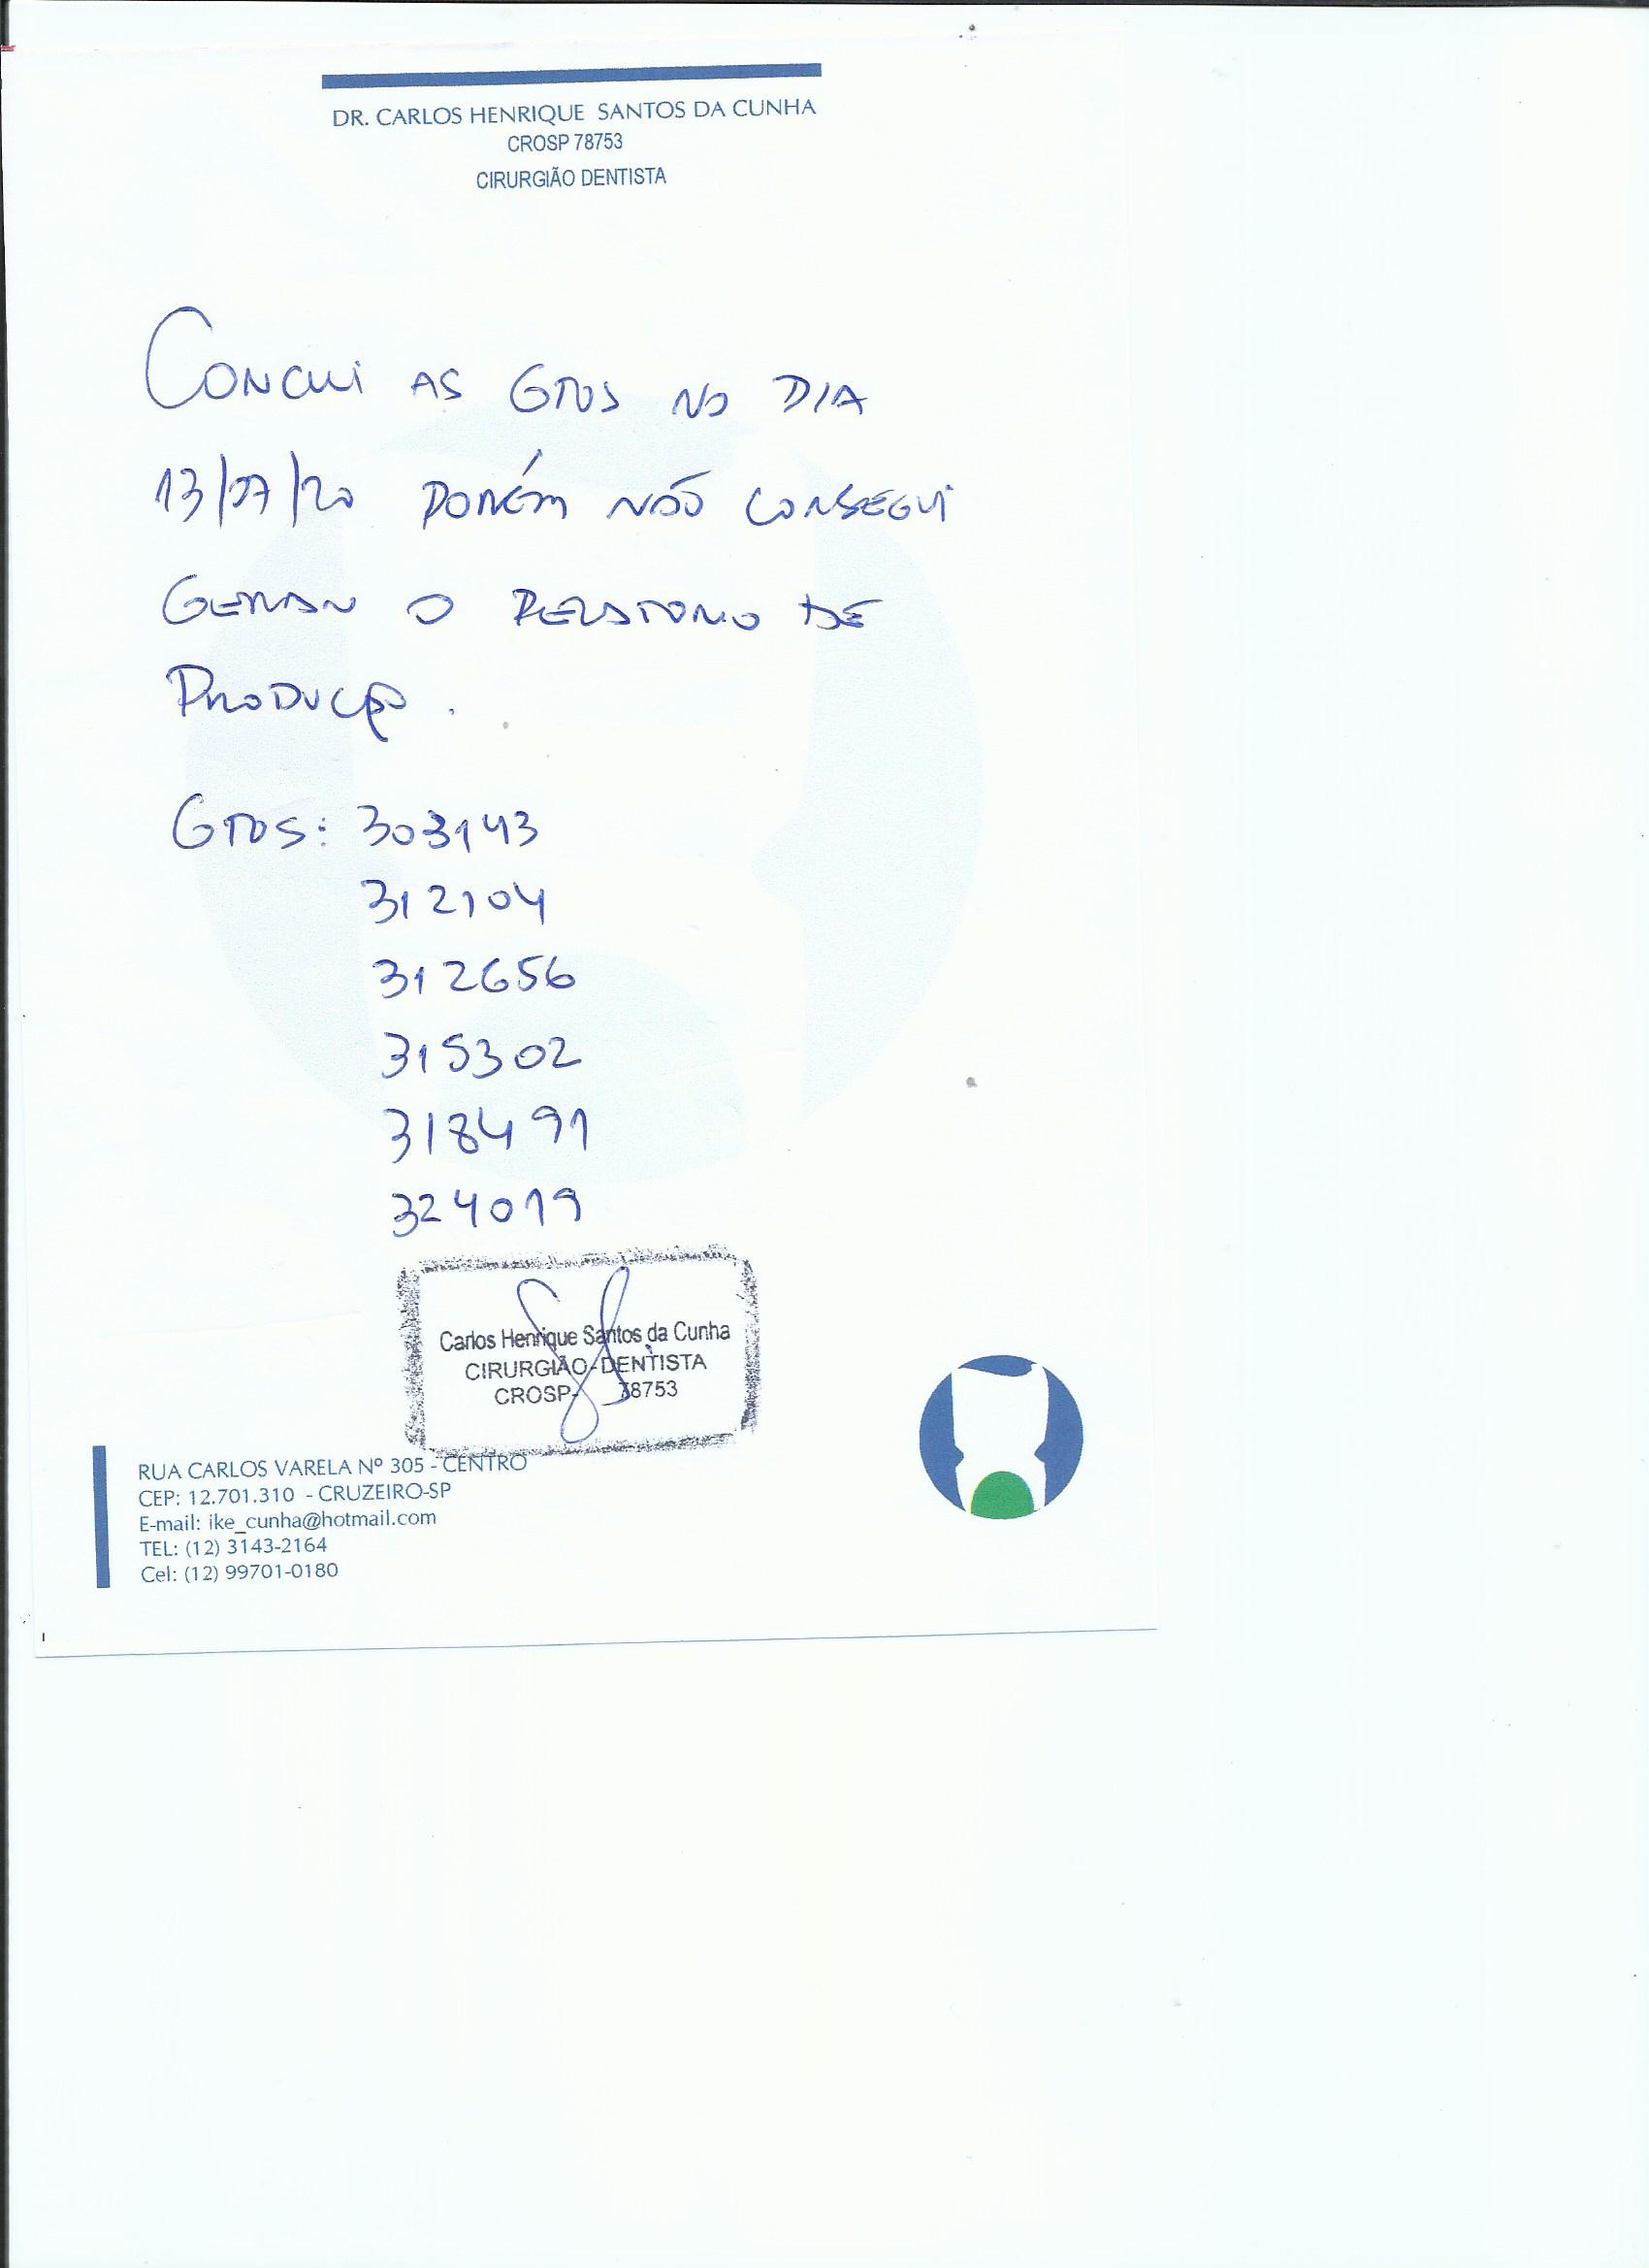 DR. CARLOS HENRIQUE SANTOS DA CUNHA
CROSP 78753
CIRURGIÃO DENTISTA
CONCLUI AS GTOS NO DIA
13/07/20 PORÉM NÃO CONSEGUI
GERAR O RELATORIO DE
PRODUÇÃO.
GTOS: 303143
312104
312656
315302
318491
324019
Carlos Henrique Santos da Cunha
CIRURGIÃO-DENTISTA
CROSP- 78753
RUA CARLOS VARELA Nº 305 - CENTRO
CEP: 12.701.310 - CRUZEIRO-SP
E-mail: ike_cunha@hotmail.com
TEL: (12) 3143-2164
Cel: (12) 99701-0180